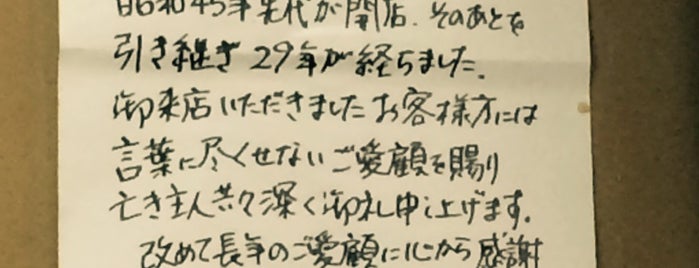 昭和45年先代が開店.そのあとを
引き継ぎ29年が経ちました.
御来店いただきましたお客様方には
言葉に尽くせないご愛顧を賜り
亡き主人共々深く御礼申し上げます.
改めて長年のご愛顧に心から感謝